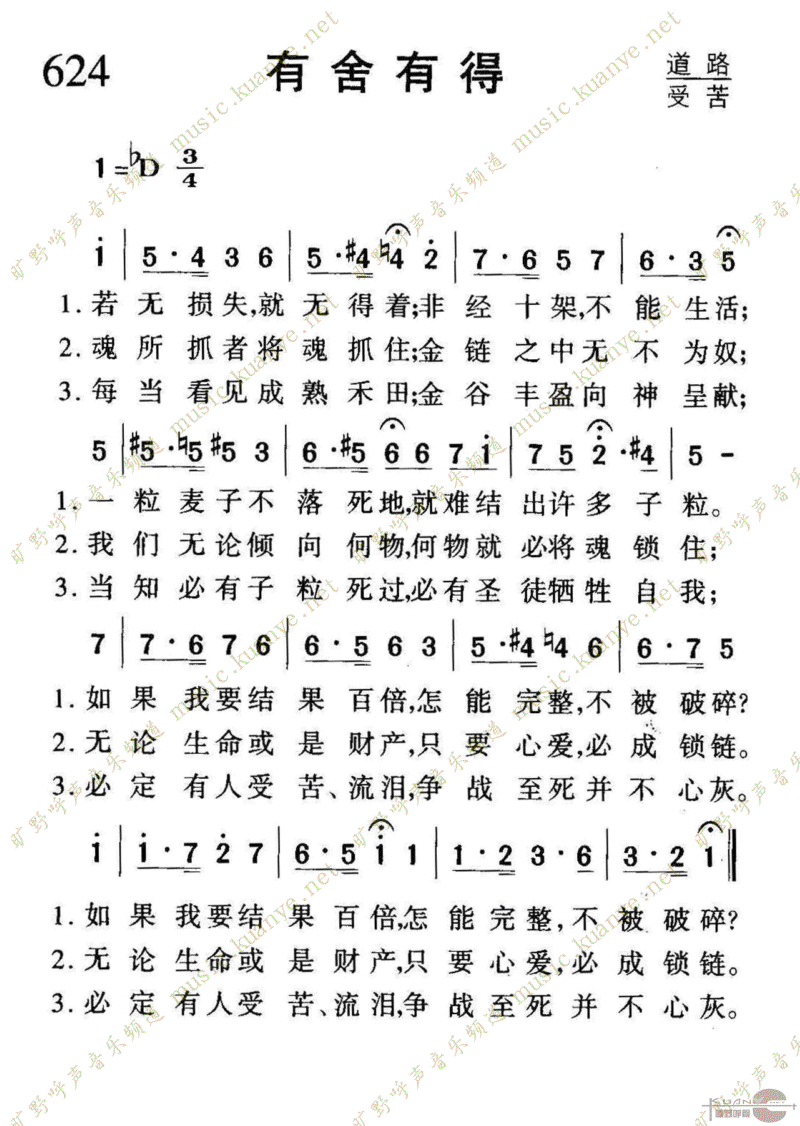 624 有舍有得 道路
受苦
1=♭D 3/4
i | 5·4 3 6 | 5·#4 ♮4 2 | 7·6 5 7 | 6·3 5
1.若无损失,就无得着;非经十架,不能生活;
2.魂所抓者将魂抓住;金链之中无不为奴;
3.每当看见成熟禾田;金谷丰盈向神呈献;
5 | #5·♮5 5 3 | 6·#5 6 6 7 i | 7 5 2·#4 | 5 -
1.一粒麦子不落死地,就难结出许多子粒。
2.我们无论倾向何物,何物就必将魂锁住;
3.当知必有子粒死过,必有圣徒牺牲自我;
7 | 7·6 7 6 | 6·5 6 3 | 5·#4 ♮4 6 | 6·7 5
1.如果我要结果百倍,怎能完整,不被破碎?
2.无论生命或是财产,只要心爱,必成锁链。
3.必定有人受苦、流泪,争战至死并不心灰。
i | i·7 2 7 | 6·5 i 1 | 1·2 3·6 | 3·2 1 ‖
1.如果我要结果百倍,怎能完整,不被破碎?
2.无论生命或是财产,只要心爱,必成锁链。
3.必定有人受苦、流泪,争战至死并不心灰。
旷野呼声音乐频道 music.kuanye.net